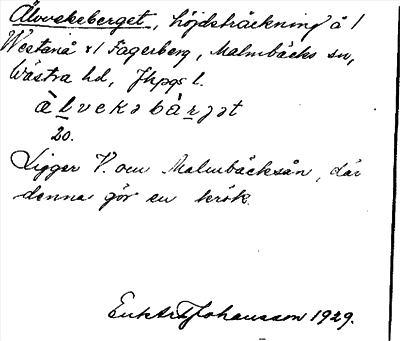 Älvvekeberget, höjdsträckning å 1
Westanå 
Fagerberg, Malmbäcks sn,
Västra hd, Jkpgs l.
ä̀lvekəbàrjət
20.
Ligger V. om Malmbäcksån, där
denna gör en krök.
Johansson 1929.